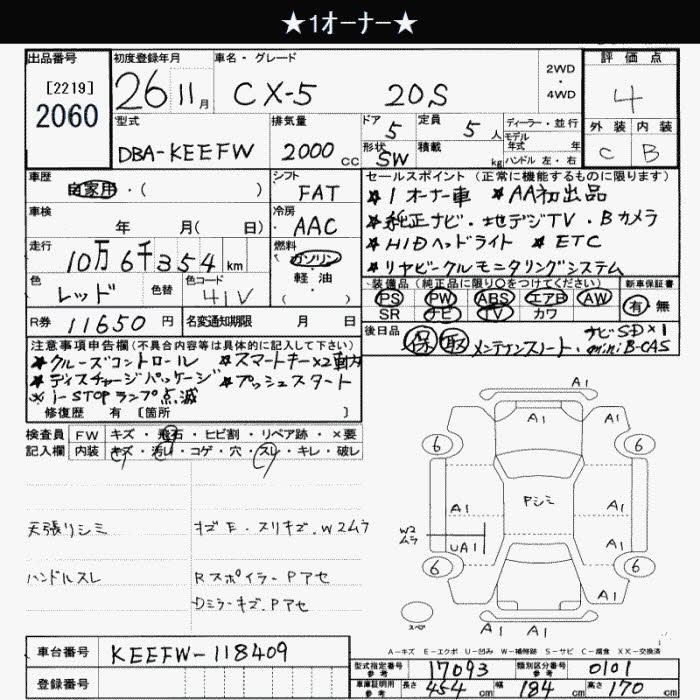 ★1オーナー★
出品番号
[2219]
2060
初度登録年月
26 11月
車名・グレード
CX-5 20S
2WD
・
4WD
評価点
4
外装 内装
C B
型式
DBA-KEEFW
排気量
2000cc
ドア 5
形状 SW
定員 5人
積載 kg
ディーラー・並行
モデル
年式 年
ハンドル 左・右
車歴
自家用・( )
シフト
FAT
車検
年 月( 日)
冷房
AAC
走行
10万6千354km
燃料
ガソリン
軽・油
( )
色
レッド
色替
色コード
41V
R券 11650円
名変通知期限 月 日
セールスポイント(正常に機能するものに限ります)
★1オーナー車 ★AA初出品
★純正ナビ・地デジTV・Bカメラ
★HIDヘッドライト ★ETC
★リヤビークルモニタリングシステム
装備品(純正品に限り○をつけてください)
新車保証書
PS PW ABS エアB AW
SR ナビ TV カワ
有 無
後日品
保 取 メンテナンスノート・ナビSD×1
miniB-CAS
注意事項申告欄(不具合内容等は具体的に記入して下さい)
★クルーズコントロール ★スマートキー×2車内
★ディスチャージパッケージ ★プッシュスタート
※i-STOPランプ点滅
修復歴 有 [箇所 ]
検査員
記入欄
FW キズ・飛石・ヒビ割・リペア跡・×要
内装 キズ・汚レ・コゲ・穴・スレ・キレ・破レ
天張リシミ
キズE・スリキズ・W2ムラ
ハンドルスレ
Rスポイラー・Pアセ
Dミラーキズ・Pアセ
A1
A1
6 6
Pシミ
A1 A1
W2
ムラ
UA1
A1
6 6
A1
A1 A1
スペア
A-キズ E-エクボ U-凹み W-補修跡 S-サビ C-腐食 XX-交換済
車台番号
KEEFW-118409
登録番号
型式指定番号
参考
17093
類別区分番号
参考
0101
車庫証明用
参考
長さ 454cm 幅 184cm 高さ 170cm